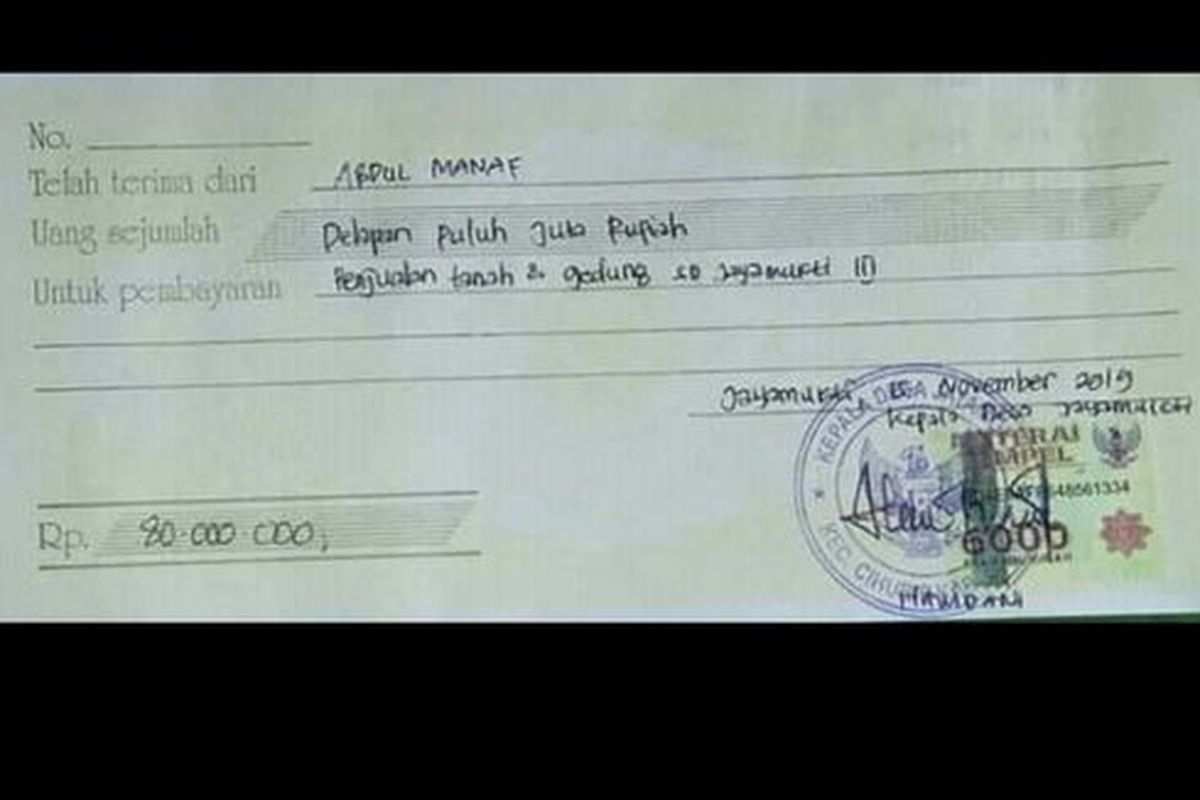 No.
Telah terima dari ABDUL MANAF
Uang sejumlah Delapan puluh Juta Rupiah
Untuk pembayaran Penjualan tanah & gedung SD Jayamukti III
Jayamukti, November 2019
Kepala Desa Jayamukti
KEPALA DESA
METERAI
TEMPEL
48561334
6000
KEC. CIHU
Rp. 80.000.000,
HAMDANI